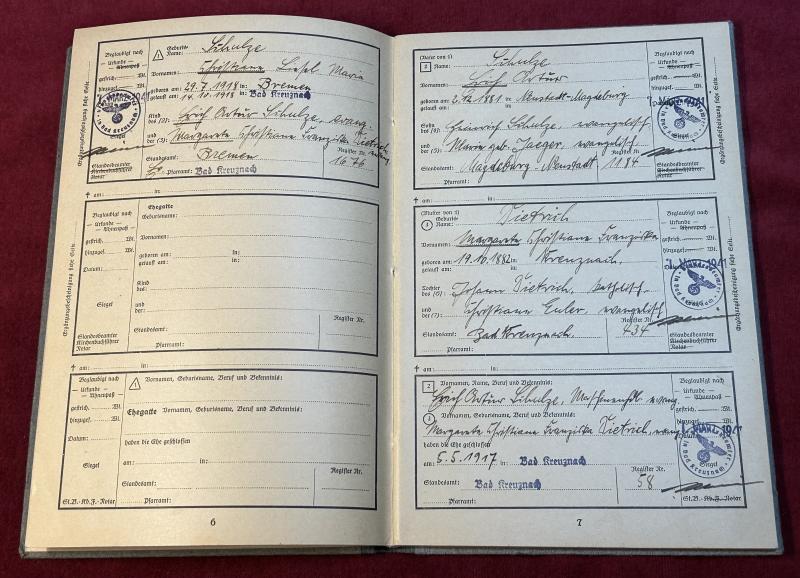 Beglaubigt nach
Urkunde
Ahnenpaß
gestrich. Wt.
hinzugef. Wt.
7. März 1941
Siegel
Standesbeamter
Kirchenbuchführer
Notar
Ergänzungsbescheinigung siehe Seite
1 Geburts-Name: Schulze
Vornamen: Christiane Liesel Maria
geboren am: 29.7.1918 in: Bremen
getauft am: 14.10.1918 in: Bad Kreuznach
Kind des (2) Erich Artur Schulze, evang.
und der (3) Margarete Christiane Franziska Dietrich, evang.
Standesamt: Bremen Register Nr. 1676
Pfarramt: Bad Kreuznach
✝ am: in:
Beglaubigt nach
Urkunde
Ahnenpaß
gestrich. Wt.
hinzugef. Wt.
Datum:
Siegel
Standesbeamter
Kirchenbuchführer
Notar
Ergänzungsbescheinigung siehe Seite
Ehegatte
Geburtsname:
Vornamen:
geboren am: in:
getauft am: in:
Kind des:
und der:
Register Nr.
Standesamt:
Pfarramt:
✝ am: in:
Beglaubigt nach
Urkunde
Ahnenpaß
gestrich. Wt.
hinzugef. Wt.
Datum:
Siegel
St.B.-Kb.F.-Notar
1 Vornamen, Geburtsname, Beruf und Bekenntnis:
Ehegatte Vornamen, Geburtsname, Beruf und Bekenntnis:
haben die Ehe geschlossen
am: in: Register Nr.
Standesamt:
Pfarramt:
6
(Vater von 1)
2 Name: Schulze
Vornamen: Erich Artur
geboren am: 2.12.1881 in: Neustadt-Magdeburg
getauft am: in:
Sohn des (4) Heinrich Schulze, evangelisch
und der (5) Marie geb. Jaeger, evangelisch.
Register Nr.
Standesamt: Magdeburg-Neustadt 1184
Pfarramt:
✝ am: in:
Beglaubigt nach
Urkunde
Ahnenpaß
gestrich. Wt.
hinzugef. Wt.
Siegel
Standesbeamter
Kirchenbuchführer
Notar
Ergänzungsbescheinigung siehe Seite
(Mutter von 1)
3 Geburts-Name: Dietrich
Vornamen: Margarete Christiane Franziska
geboren am: 19.10.1882 in: Kreuznach.
getauft am: in:
Tochter des (6) Johann Dietrich, katholisch.
und der (7) Christiane Euler, evangelisch
Register Nr.
Standesamt: Bad Kreuznach. 434
Pfarramt:
✝ am: in:
Beglaubigt nach
Urkunde
Ahnenpaß
gestrich. Wt.
hinzugef. Wt.
7. März 1941
Siegel
Standesbeamter
Kirchenbuchführer
Notar
Ergänzungsbescheinigung siehe Seite
2 Vornamen, Name, Beruf und Bekenntnis:
Erich Artur Schulze, evang.
3 Vornamen, Geburtsname, Beruf und Bekenntnis:
Margarete Christiane Franziska Dietrich, evang.
haben die Ehe geschlossen
am: 5.5.1917 in: Bad Kreuznach
Register Nr.
Standesamt: Bad Kreuznach 58
Pfarramt:
Beglaubigt nach
Urkunde
Ahnenpaß
gestrich. Wt.
hinzugef. Wt.
Siegel
St.B.-Kb.F.-Notar
7